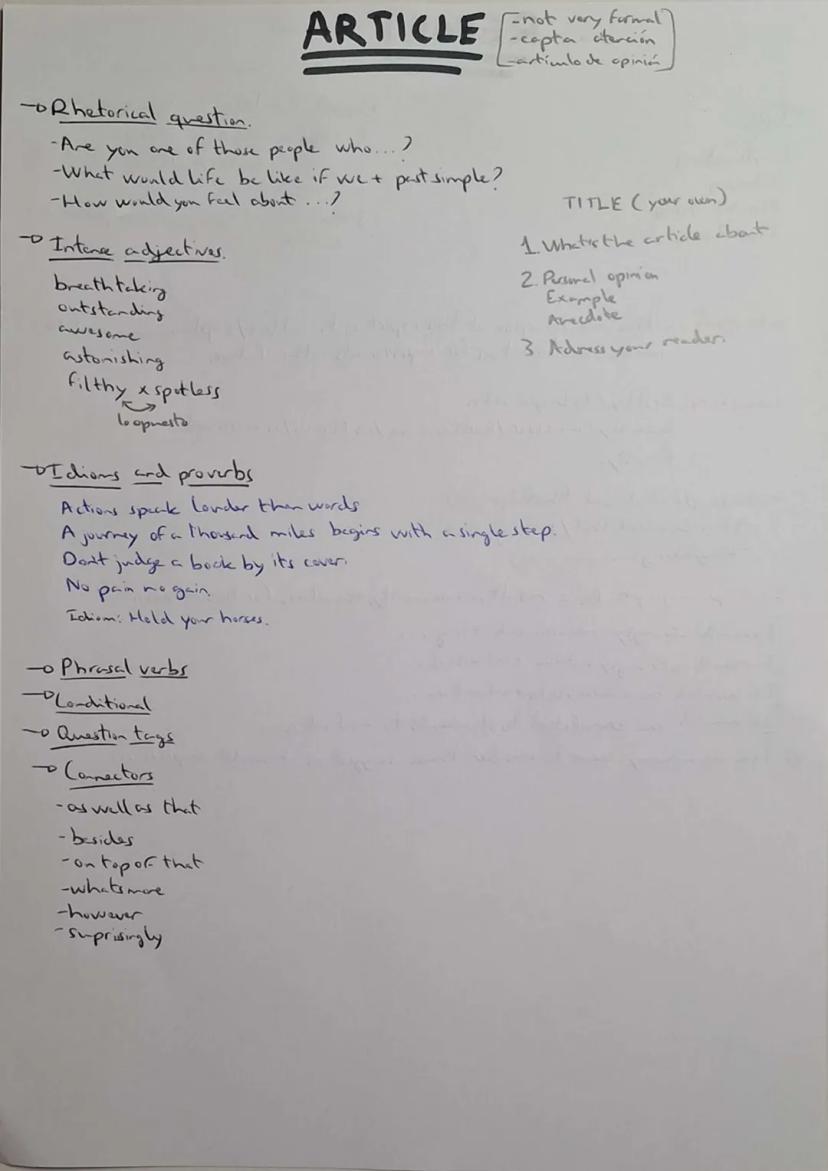 ARTICLE
-not very formal
-capta atención
-artículo de opinión
→Rhetorical question.
-Are you one of those people who...?
-What would life be like if we + past simple?
-How would you feel about ...?
→Intense adjectives.
breathtaking
outstanding
awesome
astonishing
filthy x spotless
lo opuesto
TITLE (your own)
1. What's the article about
2. Personal opinion
Example
Anecdote
3 Adress your reader.
→Idioms and proverbs
Actions speak louder than words
A journey of a thousand miles begins with a single step.
Don't judge a book by its cover.
No pain no gain.
Idiom: Hold your horses.
→Phrasal verbs
→Conditional
→Question tags
→Connectors
-as well as that
-besides
-on top of that
-whats more
-however
-surprisingly